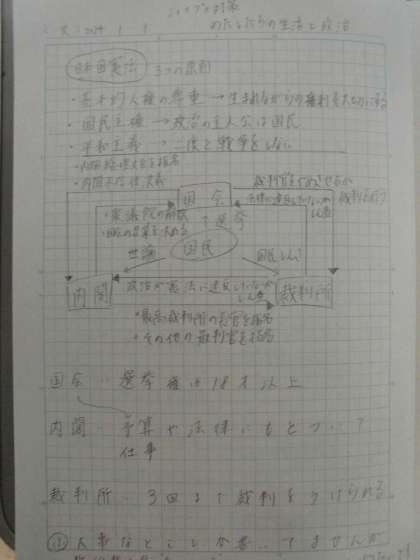 わたしたちの生活と政治
日本国憲法 3つの原則
・基本的人権の尊重 → 生まれながらの権利を大切にする
・国民主権 → 政治の主人公は国民
・平和主義 → 二度と戦争をしない
・内閣総理大臣を指名
・内閣不信任決議
国会
裁判官をやめさせるか
・衆議院の解散
↑選挙
世論
国民
国民しんさ
内閣
政治が憲法に違反していないか
裁判所
・最高裁判所の長官を指名
・その他の裁判官を
国会‥選挙権は18才以上
内閣‥予算や法律にもとづいて
仕事
裁判所‥3回まで裁判をうけられる